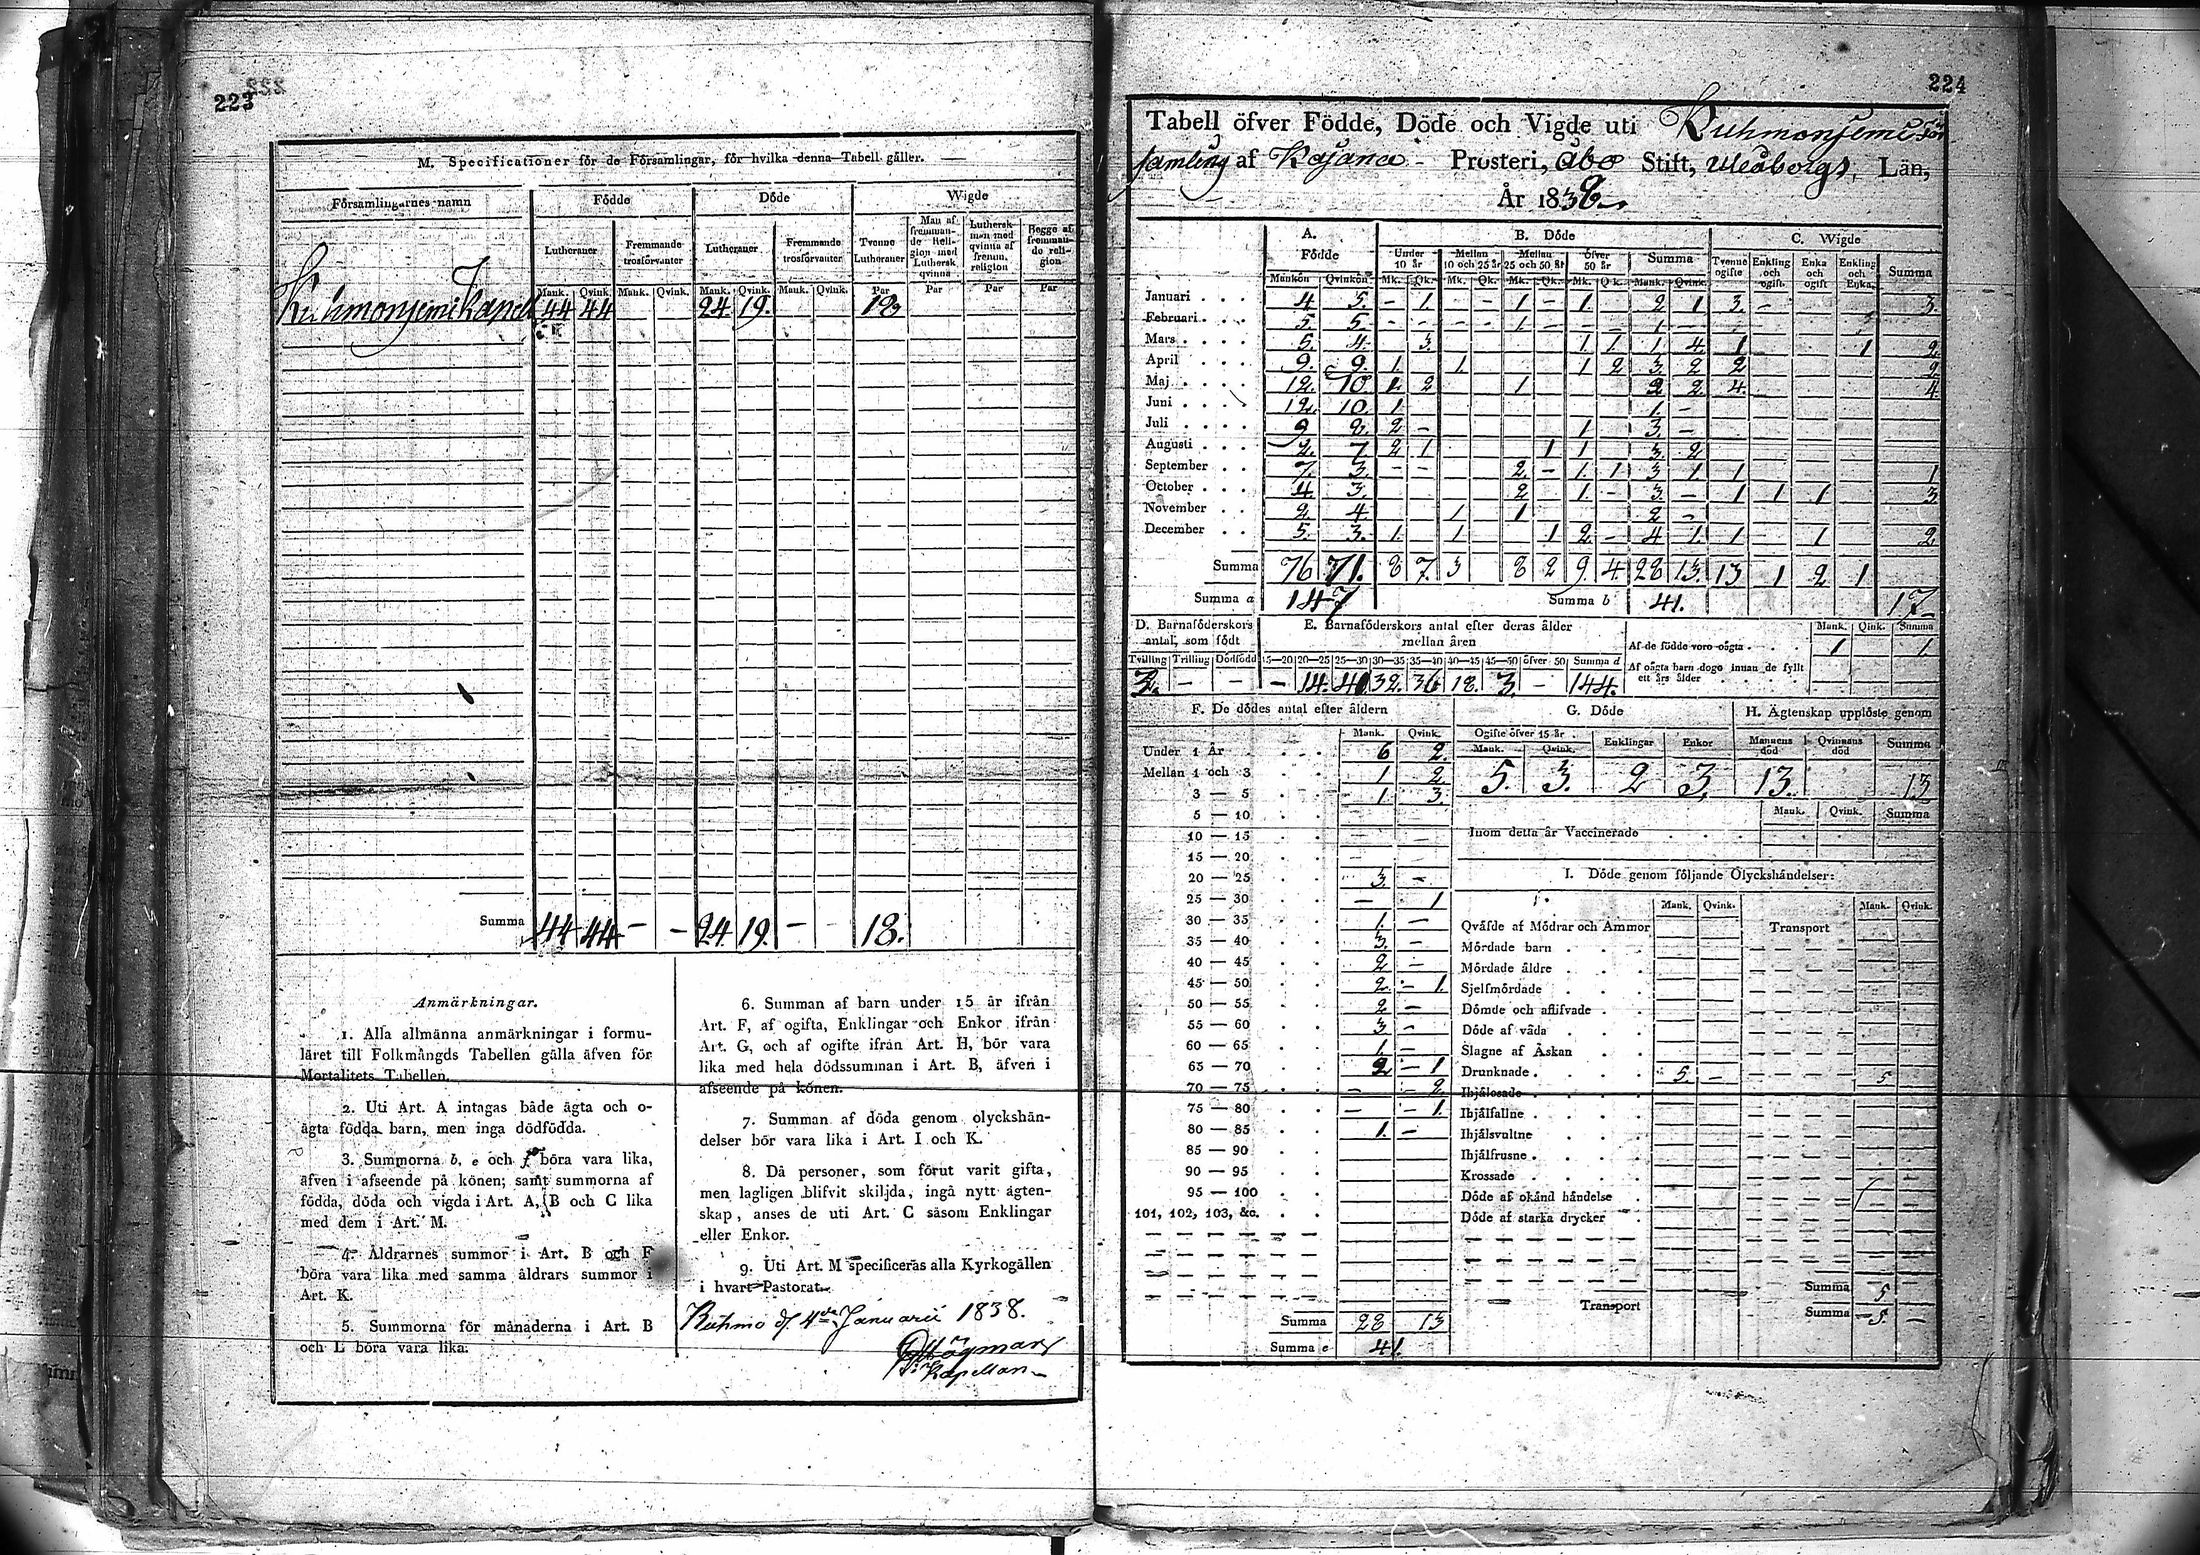 223
M. Specificationer för de Församlingar, för hvilka denna Tabell gäller.
Församlingarnes namn | Födde | Döde | Wigde
Lutheraner | Fremmande trosförvanter | Lutheraner | Fremmande trosförvanter | Tvenne Lutheraner | Man af fremmande Religion med Luthersk qvinna | Luthersk man med qvinna af fremm. religion | Begge af fremmande religion
Mank. | Qvink. | Mank. | Qvink. | Mank. | Qvink. | Mank. | Qvink. | Par | Par | Par | Par
Kuhmoniemi Kapell 44 44 24 19. 18
Summa 44 44 - - 24 19. - 18.
Anmärkningar.
1. Alla allmänna anmärkningar i formu-
läret till Folkmängds Tabellen gälla äfven för
Mortalitets Tabellen.
2. Uti Art. A intagas både ägta och o-
ägta födda barn, men inga dödfödda.
3. Summorna b, e och f böra vara lika,
äfven i afseende på könen; samt summorna af
födda, döda och vigda i Art. A, B och C lika
med dem i Art. M.
4. Åldrarnes summor i Art. B och F
böra vara lika med samma åldrars summor i
Art. K.
5. Summorna för månaderna i Art. B
och L böra vara lika.
6. Summan af barn under 15 år ifrån
Art. F, af ogifta, Enklingar och Enkor ifrån
Art. G, och af ogifte ifrån Art. H, bör vara
lika med hela dödssumman i Art. B, äfven i
afseende på könen.
7. Summan af döda genom olyckshän-
delser bör vara lika i Art. I och K.
8. Då personer, som förut varit gifta,
men lagligen blifvit skiljda, ingå nytt ägten-
skap, anses de uti Art. C såsom Enklingar
eller Enkor.
9. Uti Art. M specificeras alla Kyrkogällen
i hvart Pastorat.
Kuhmo d. 4de Januarii 1838.
Högman
Kapellan
224
Tabell öfver Födde, Döde och Vigde uti Kuhmoniemi För
samling af Kajana Prosteri, Åbo Stift, Uleåborgs Län,
År 1838.
A. Födde | B. Döde | C. Wigde
Under 10 år | Mellan 10 och 25 år | Mellan 25 och 50 år | Öfver 50 år | Summa | Tvenne ogifte | Enkling och ogift | Enka och ogift | Enkling och Enka | Summa
Mankön | Qvinkön | Mk. | Qk. | Mk. | Qk. | Mk. | Qk. | Mk. | Qk. | Mank. | Qvink.
Januari 4 5. - 1. 1 - 1. 2 1 3. - 3.
Februari 5 5. - - - - 1 - - 1 -
Mars 5 4. 3 1 1 1 4 1 1 2
April 9. 9. 1. 1 1 2 3 2 2 2
Maj 12. 10 1. 2 1 2 2. 4. 4.
Juni 12 10. 1 1 -
Juli 9 8. 2 - 1 3 -
Augusti 2. 7 2 1 1 1 3 2
September 7. 3. - - 2 - 1 1 3 1 1 1
October 4 3. 2 1 - 3 - 1 1 1 3
November 2. 4 1 1 2 -
December 5. 3. 1. 1 1 2 - 4 1. 1 - 1 2
Summa 76 71. 8 7. 3 8 2 9. 4. 28 13. 13 1 2 1
Summa a 147 Summa b 41. 17
D. Barnaföderskors antal, som födt
Tvilling | Trilling | Dödfödd
3. - -
E. Barnaföderskors antal efter deras ålder mellan åren
15—20 | 20—25 | 25—30 | 30—35 | 35—40 | 40—45 | 45—50 | öfver 50 | Summa d
- 14. 41 32. 36 18. 3. - 144.
Mank. | Qink. | Summa
Af de födde voro oägta 1 1.
Af oägta barn dogo innan de fyllt
ett års ålder
F. De dödes antal efter åldern
Mank. | Qvink.
Under 1 År 6 2.
Mellan 1 och 3 1 2.
3 — 5 1 3.
5 — 10
10 — 15
15 — 20
20 — 25 3. -
25 — 30 - 1
30 — 35 1. -
35 — 40 3. -
40 — 45 2 -
45 — 50 2. - 1
50 — 55 2 -
55 — 60 3 -
60 — 65 1. -
65 — 70 2 - 1
70 — 75 - - 2.
75 — 80 - - 1.
80 — 85 1. -
85 — 90
90 — 95
95 — 100
101, 102, 103, &c.
Summa 28 13
Summa e 41.
G. Döde
Ogifte öfver 15 år | Enklingar | Enkor
Mank. | Qvink.
5. 3. 2 3.
H. Ägtenskap upplöste genom
Mannens död | Qvinnans död | Summa
13. 13
Mank. | Qvink. | Summa
Inom detta år Vaccinerade
I. Döde genom följande Olyckshändelser:
Mank. | Qvink. | Mank. | Qvink.
Qväfde af Mödrar och Ammor Transport
Mördade barn
Mördade äldre
Sjelfmördade
Dömde och aflifvade
Döde af våda
Slagne af Åskan
Drunknade 5. - 5
Ihjälosade
Ihjälfallne
Ihjälsvultne
Ihjälfrusne
Krossade
Döde af okänd händelse
Döde af starka drycker
Summa 5
Transport Summa - 5. -